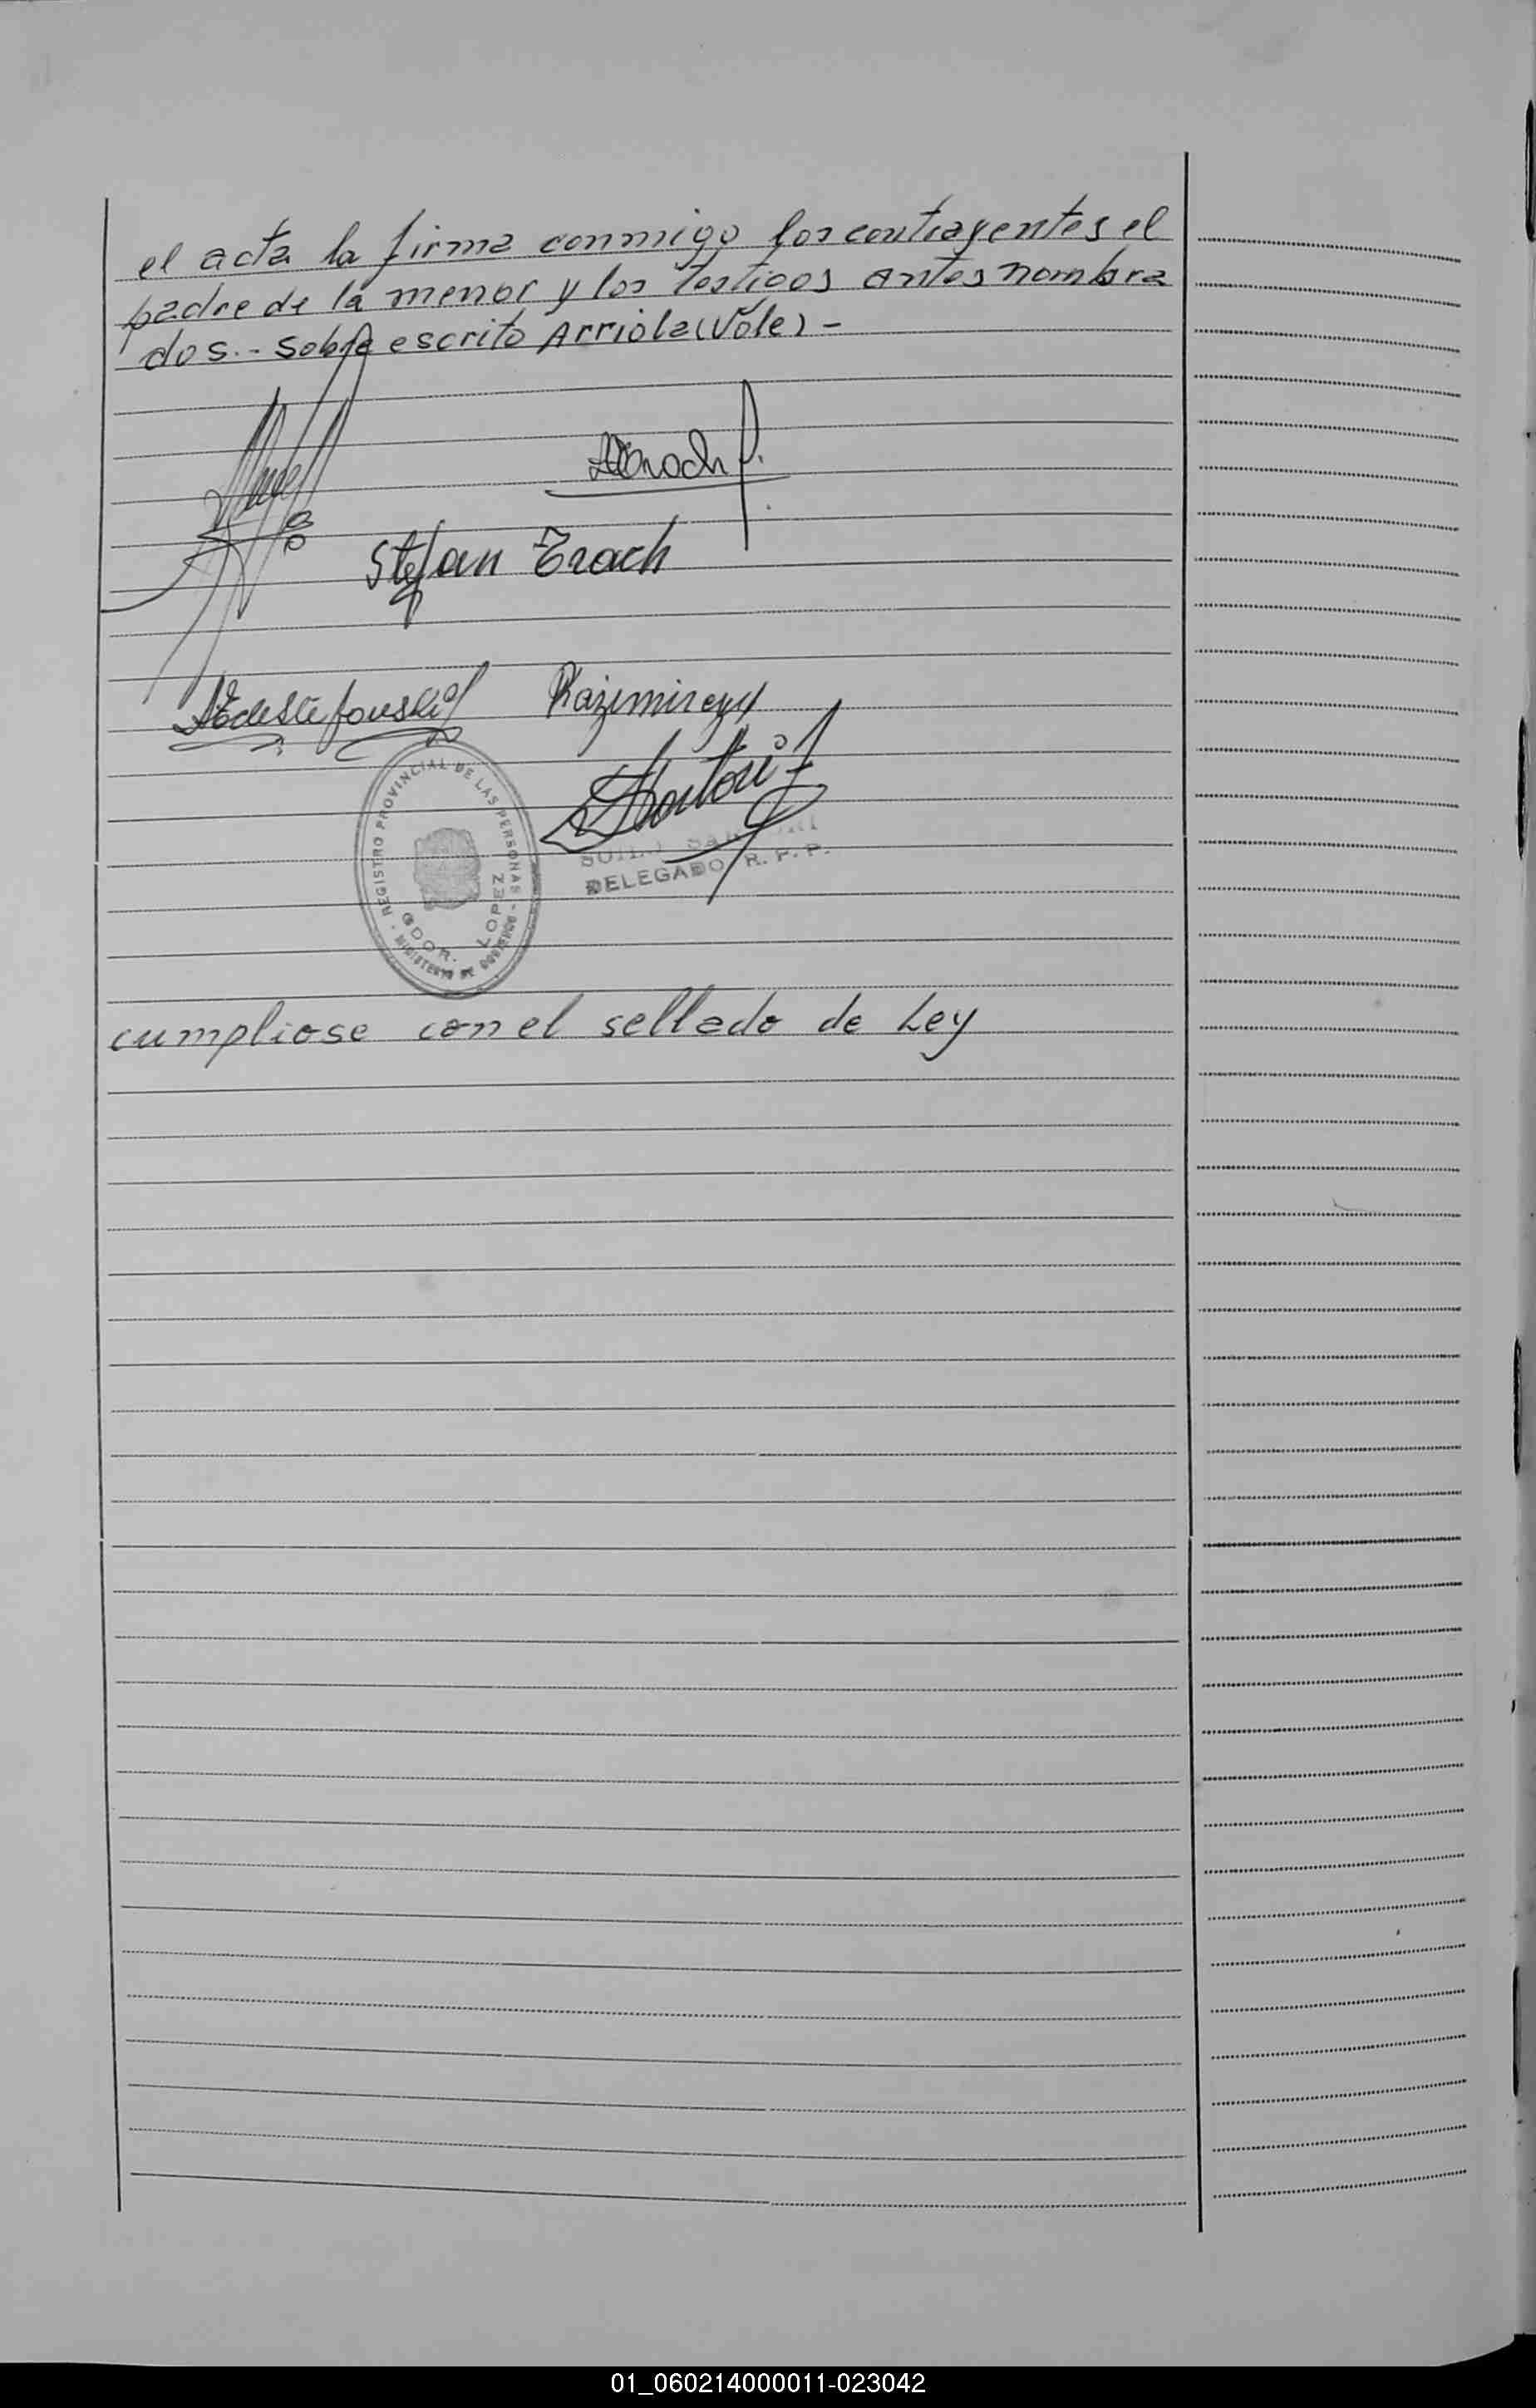 el acta la firma conmigo los contrayentes el
padre de la menor y los testigos antes nombra
dos.- Sobre escrito Arriola (Vale) -
Stefan Trach
Kazimirczyf
REGISTRO PROVINCIAL DE LAS PERSONAS - MINISTERIO DE GOBIERNO -
GDOR. LOPEZ
DELEGADO R. P. P.
cumpliose con el sellado de Ley
01_060214000011-023042